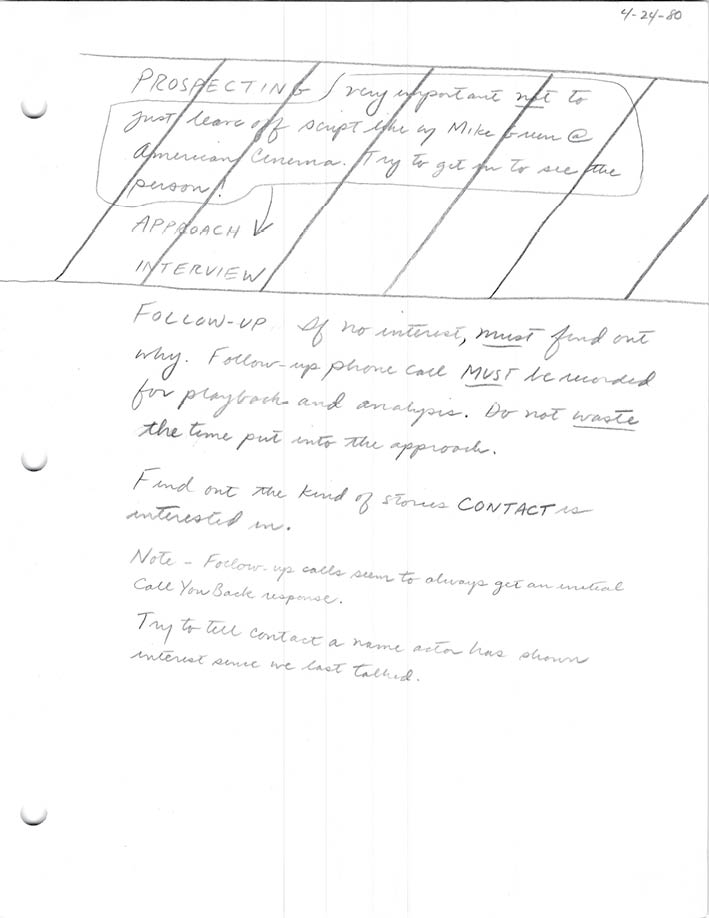 4-24-80
PROSPECTING very important not to
just leave off script like w/ Mike Green @
American Cinema. Try to get in to see the
person!
APPROACH
INTERVIEW
FOLLOW-UP If no interest, must find out
why. Follow-up phone call MUST be recorded
for playback and analysis. Do not waste
the time put into the approach.
Find out the kind of stories CONTACT is
interested in.
Note - Follow-up calls seem to always get an initial
Call You Back response.
Try to tell contact a name actor has shown
interest since we last talked.